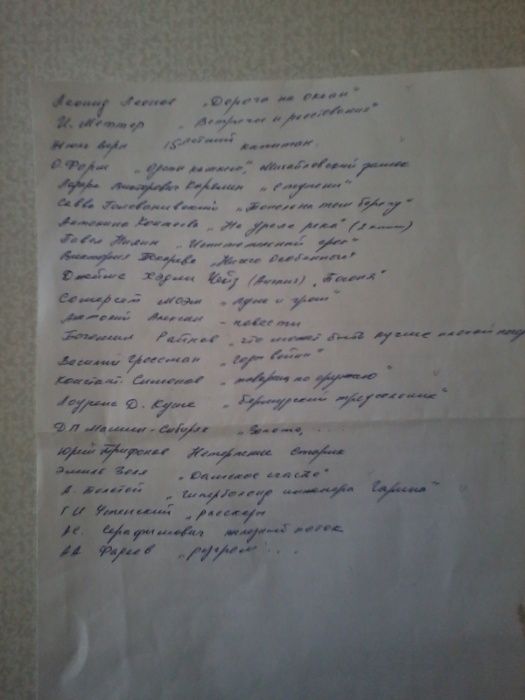 Леонид Леонов „Дорога на океан"
И. Меттер „Встречи и расставания"
Жюль Верн 15летний капитан.
О. Форш „Одеты камнем", „Михайловский замок
Лазарь Викторович Карелин „Ступени"
Савва Голованивский „Тополь на том берегу"
Антонина Коптяева „На Урале реке" (
Павел Нилин
Виктория Токарева „Ничего особенного"
Джеймс Хэдли Чейз (Англия) „Погоня"
Сомерсет Моэм „Луна и грош"
Анатолий Алексин – повести
Богомил Райнов „что может быть лучше плохой
Василий Гроссман „Годы войны"
Констант. Симонов „товарищ по оружию"
Лоуренс Д. Куше „Бермудский треугольник"
Д П Мамин-Сибиряк „Золото, ...
Юрий Трифонов Нетерпение Старик
Эмиль Золя „Дамское счастье"
А. Толстой „Гиперболоид инженера Гарина"
Г И Успенский „рассказы
А С. Серафимович железный поток
А А Фадеев „разгром ...